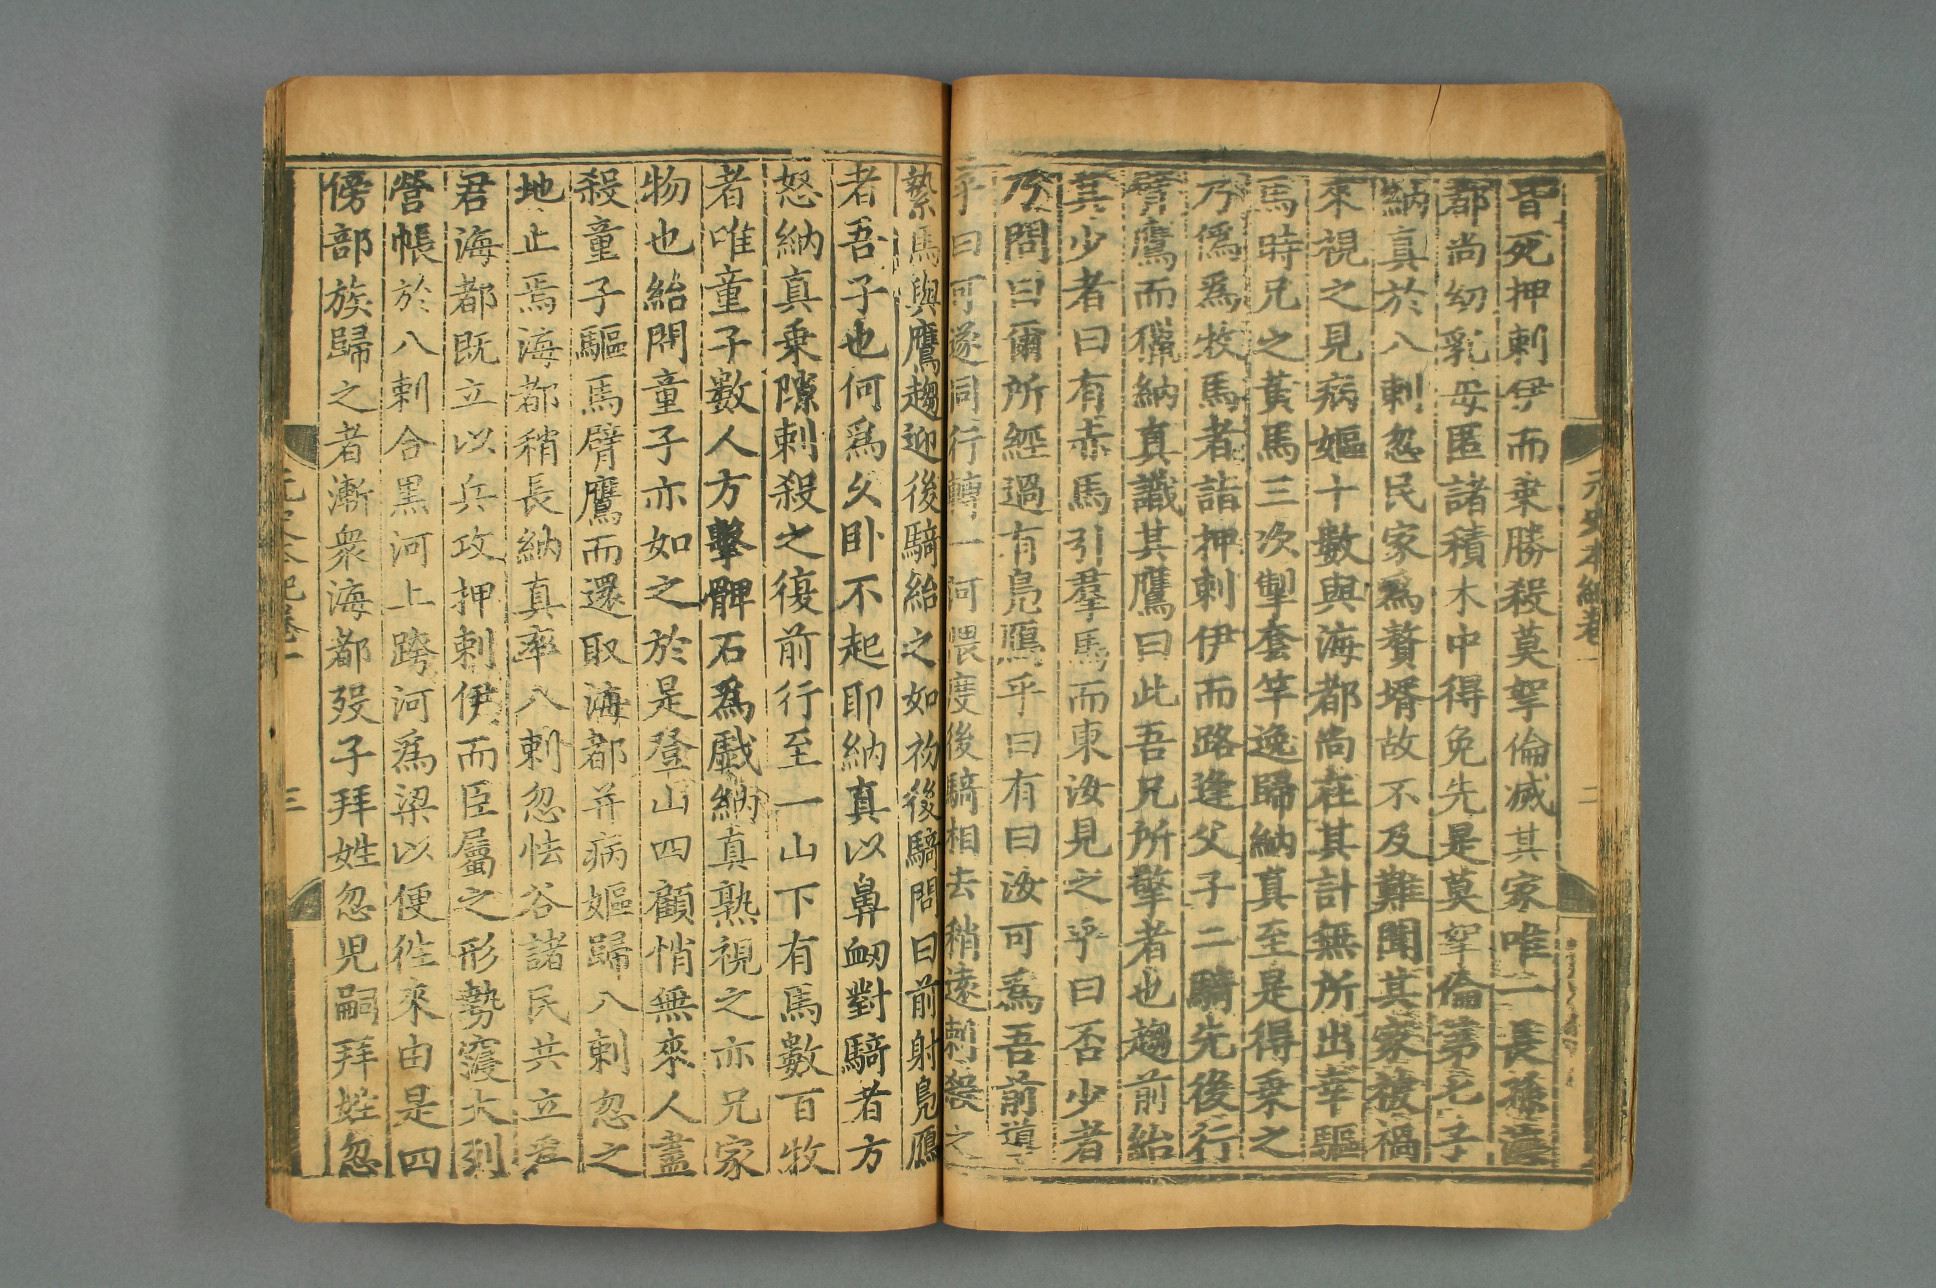 元史本紀卷一
二
皆死押剌伊而乗勝殺莫拏倫滅其家唯一長孫海
都尚幼乳母匿諸積木中得免先是莫拏倫第七子
納真於八剌忽民家爲贅壻故不及難聞其家被禍
來視之見病嫗十數與海都尚在其計無所出幸驅
馬時兄之黃馬三次掣套竿逸歸納真至是得乗之
乃僞爲牧馬者詣押剌伊而路逢父子二騎先後行
臂鷹而獵納真識其鷹曰此吾兄所擎者也趨前紿
其少者曰有赤馬引羣馬而東汝見之乎曰否少者
乃問曰爾所經過有鳬鴈乎曰有曰汝可爲吾前導
乎曰可遂同行轉一河隈度後騎相去稍遠刺殺之
縶馬與鷹趨迎後騎紿之如初後騎問曰前射鳬鴈
者吾子也何爲久卧不起耶納真以鼻衂對騎者方
怒納真乗隙刺殺之復前行至一山下有馬數百牧
者唯童子數人方擊髀石爲戲納真熟視之亦兄家
物也紿問童子亦如之於是登山四顧悄無來人盡
殺童子驅馬臂鷹而還取海都并病嫗歸八剌忽之
地止焉海都稍長納真率八剌忽怯谷諸民共立爲
君海都既立以兵攻押剌伊而臣屬之形勢寖大列
營帳於八剌合黑河上跨河爲梁以便徃來由是四
傍部族歸之者漸衆海都歿子拜姓忽兒嗣拜姓忽
元史本紀卷一
三